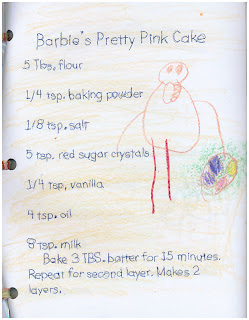 Barbie's Pretty Pink Cake
5 Tbs. flour
1/4 tsp. baking powder
1/8 tsp. salt
5 tsp. red sugar crystals
1/4 tsp. vanilla
4 tsp. oil
8 tsp. milk
Bake 3 TBS. batter for 15 minutes.
Repeat for second layer. Makes 2
layers.